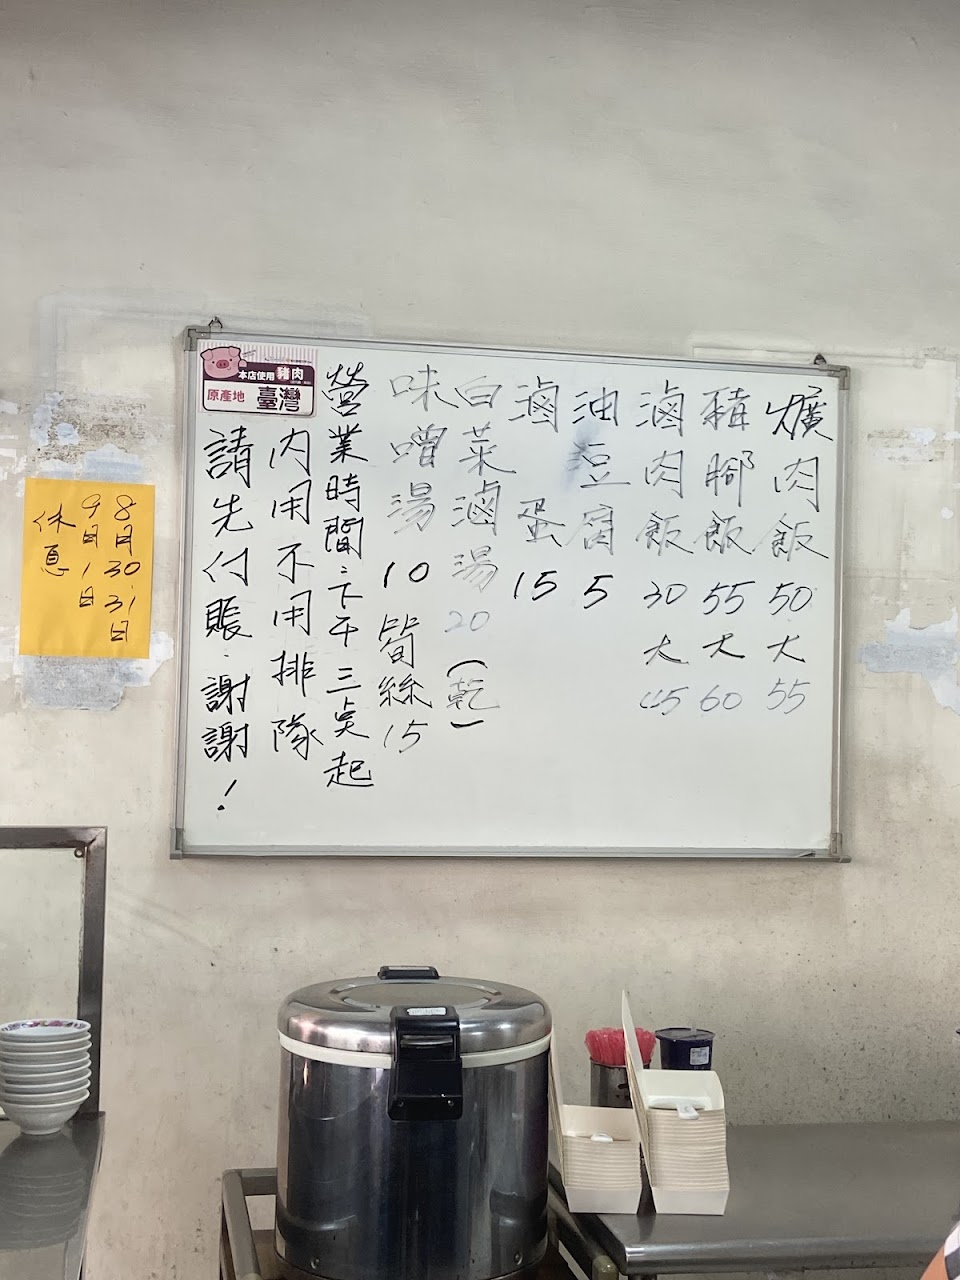 爌肉飯 50 大 55
豬腳飯 55 大 60
滷肉飯 30 大 45
油豆腐 5
滷蛋 15
白菜滷湯 20 (乾)
味噌湯 10 筍絲 15
營業時間:下午三点起
內用不用排隊
請先付賬.謝謝!
本店使用豬肉
原產地 臺灣
8月30.31日
9月1日
休息